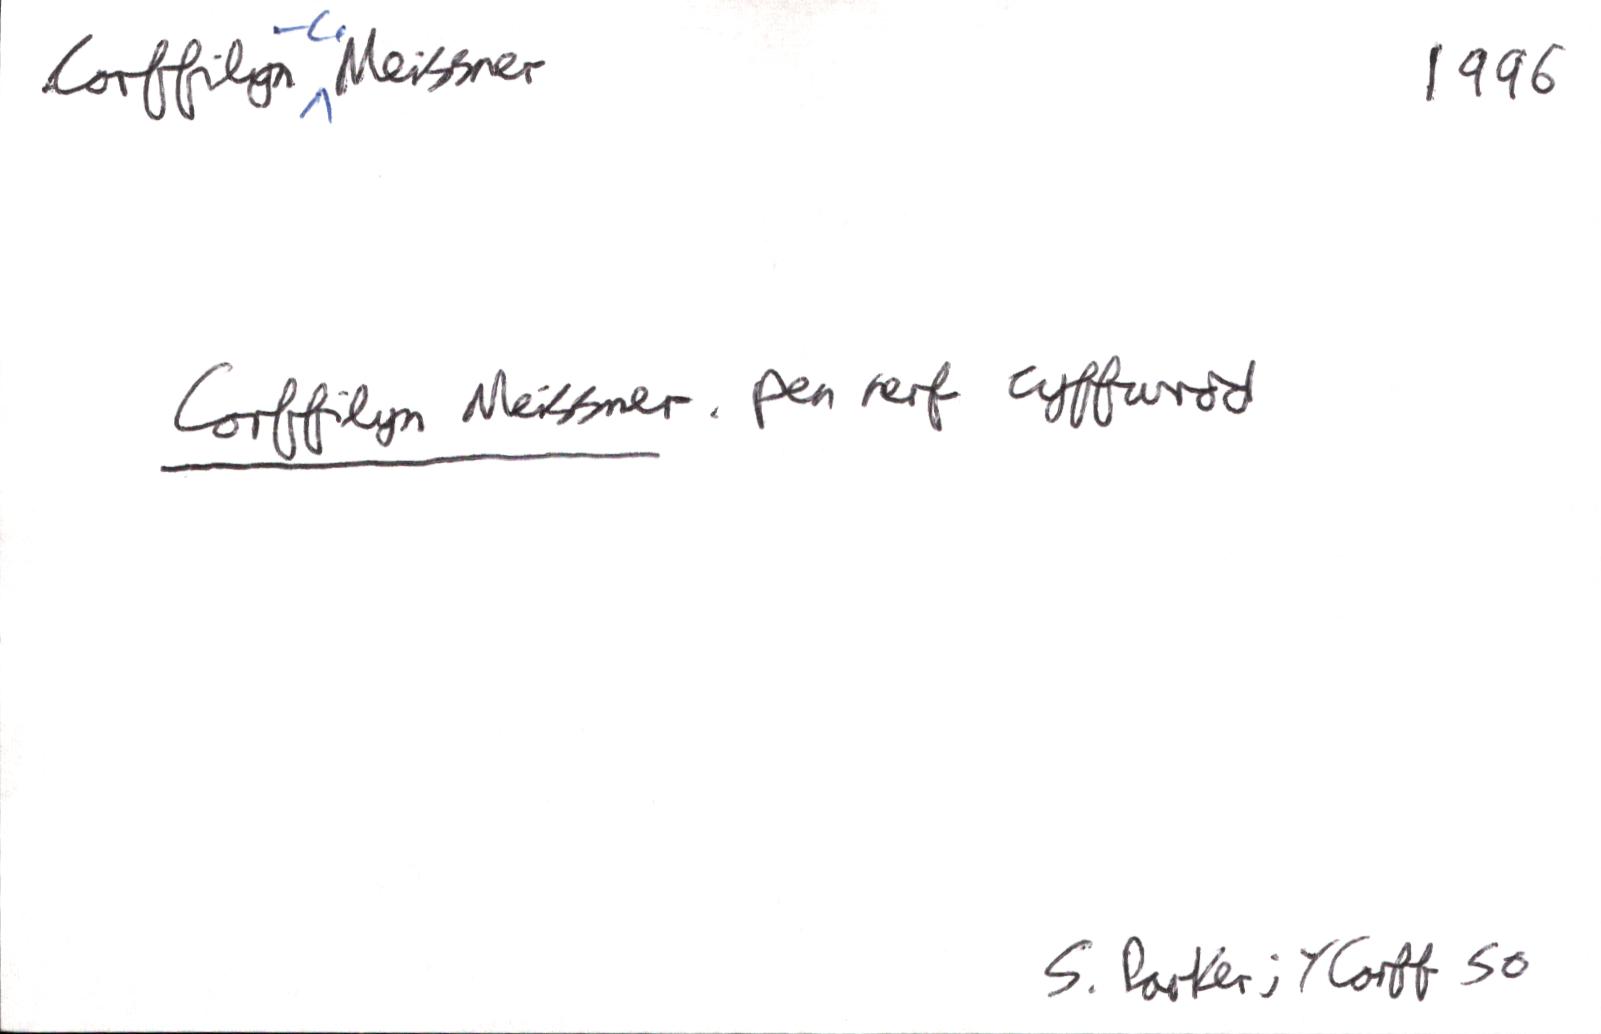 Corffilyn -c. Meissner 1996
Corffilyn Meissner. pen nerf cyffwrdd
S. Parker; Y Corff 50